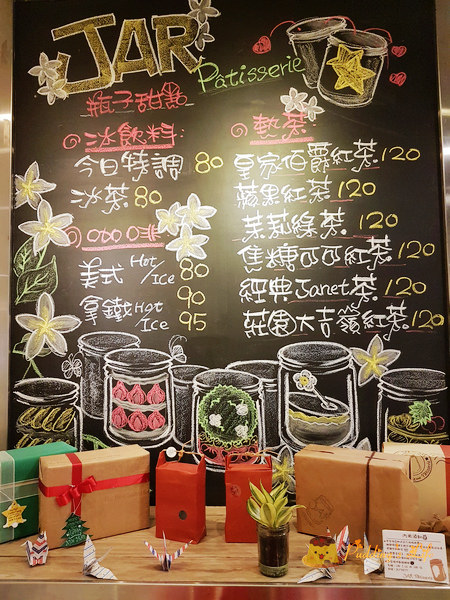 JAR
Pâtisserie
瓶子甜點
冰飲料
今日特調 80
冰茶 80
咖啡
美式 Hot/Ice 80
拿鐵 Hot 90
Ice 95
熱茶
皇家伯爵紅茶 120
蘋果紅茶 120
茉莉綠茶 120
焦糖可可紅茶 120
經典Janet茶 120
莊園大吉嶺紅茶 120